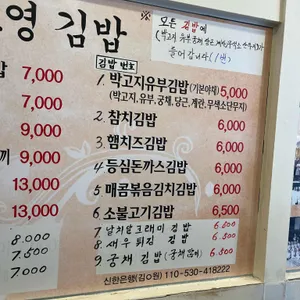 영 김밥
모든 김밥에
들어갑니다 (1번)
7,000
7,000
9,000
9,000
13,000
13,000
8.000
7.500
7000
김밥 번호
1. 박고지유부김밥(기본야채) 5,000
(박고지, 유부, 궁채, 당근, 계란, 무색소단무지)
2. 참치김밥 6,000
3. 햄치즈김밥 6,000
4. 등심돈까스김밥 6,000
5. 매콤볶음김치김밥 6,000
6. 소불고기김밥 6,500
7 날치알크래미 김밥 6.500
8. 새우튀김 김밥 6.500
9 궁채 김밥 6.500
신한은행(김O원) 110-530-418222